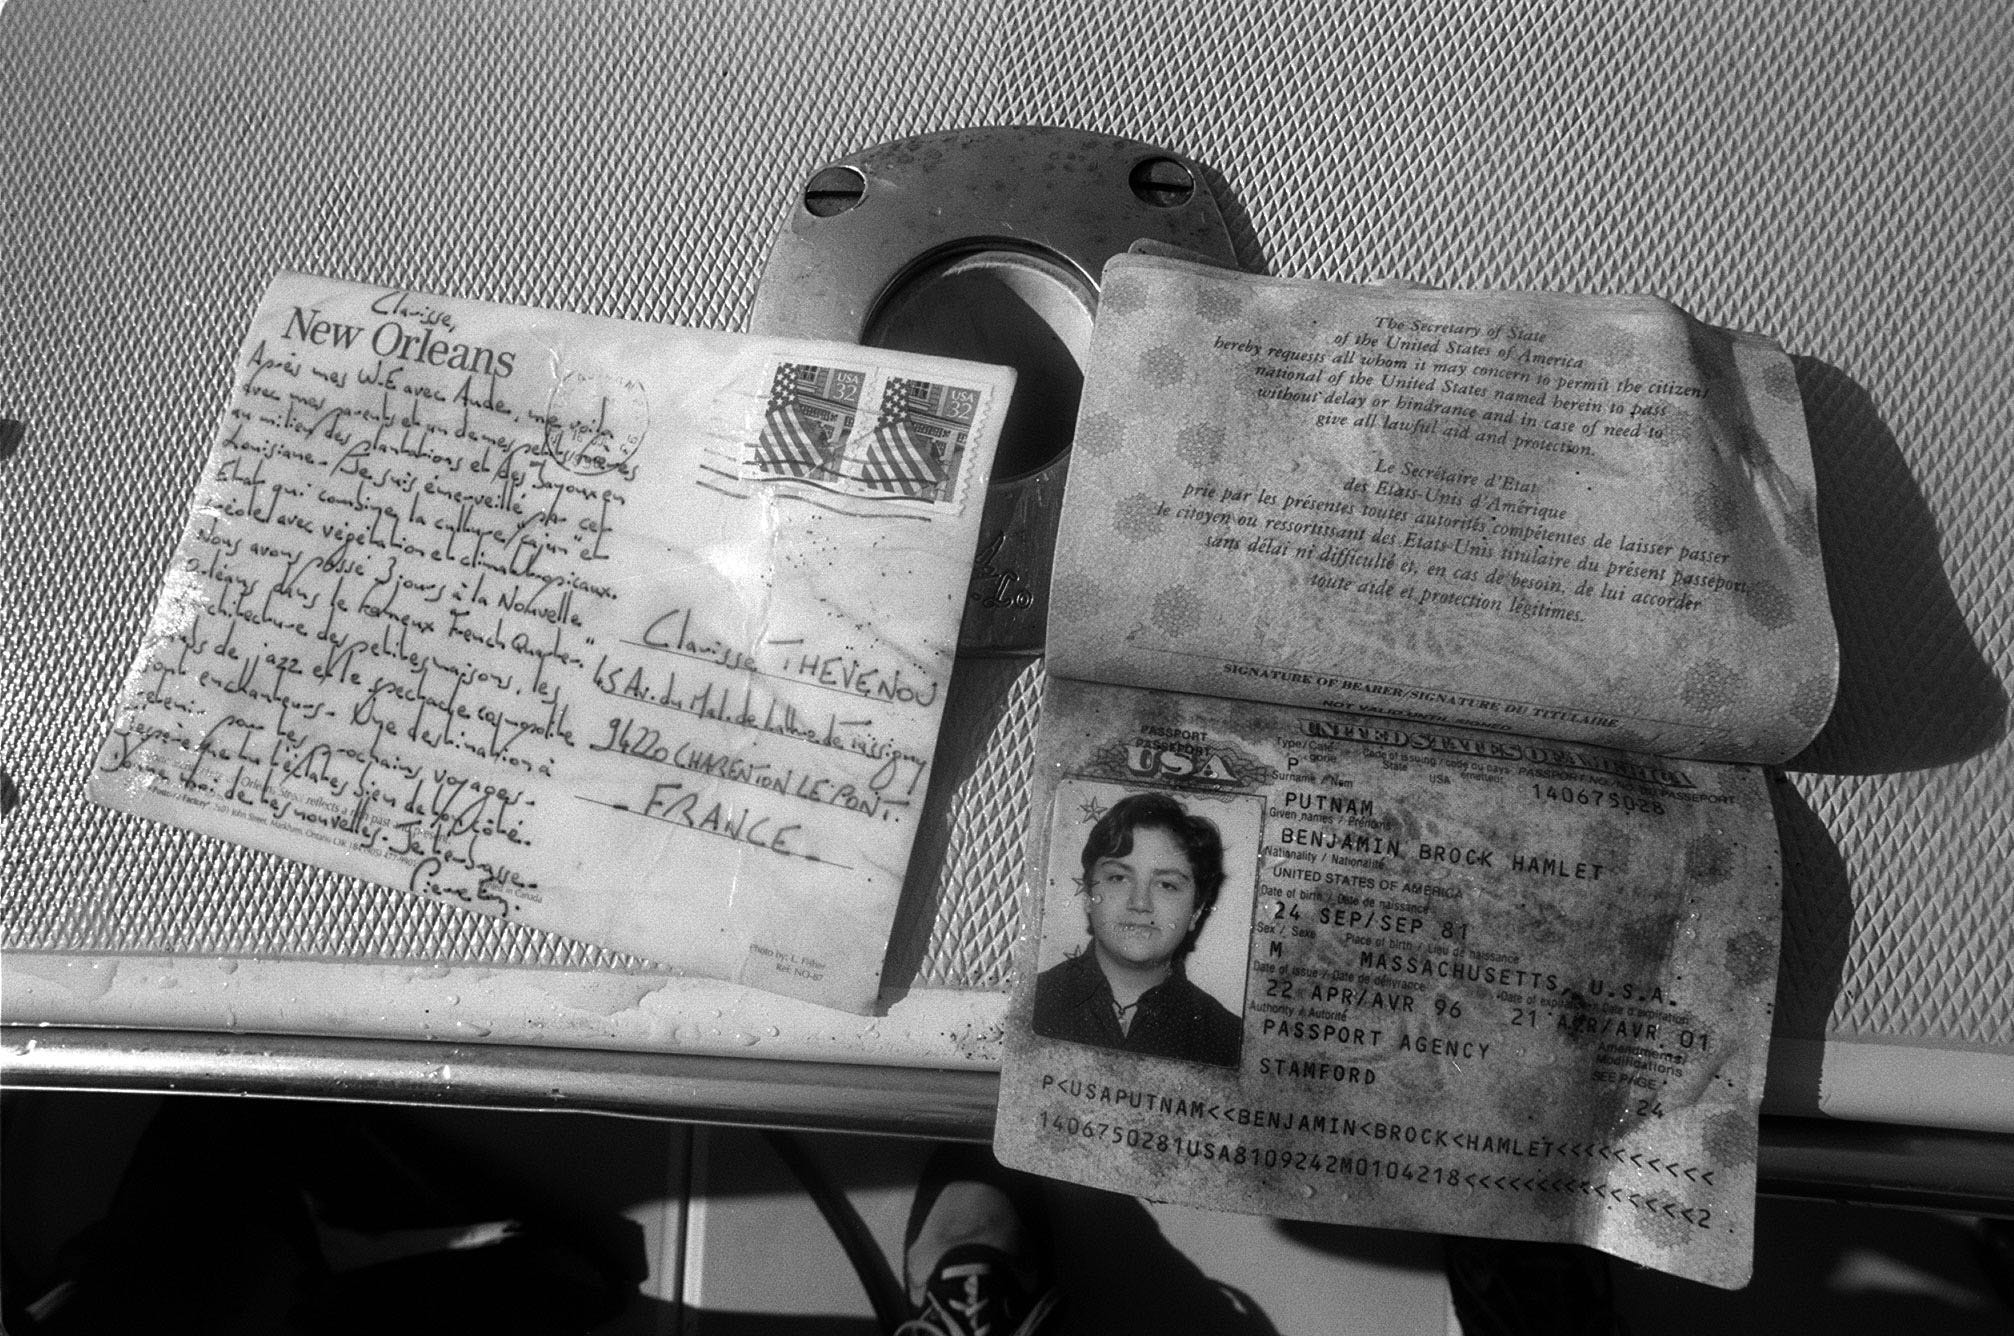 Clarisse,
New Orleans
Après mes W-E avec Aude, me voilà
avec mes parents et un de mes petits frères
au milieu des plantations et des Bayoux en
Louisiane. Je suis émerveillé par cet
Etat qui combine la culture "cajun" et
créole avec végétation et climat tropicaux.
Nous avons passé 3 jours à la Nouvelle
Orléans dans le fameux "French Quarter"
architecture des petites maisons, les
de jazz et le spectacle cosmopolite
sont enchanteurs. Une destination à
retenir pour les prochains voyages.
J'espère que tu t'éclates bien de ton côté.
Donne moi de tes nouvelles. Je t'embrasse.
Orleans, reflects a rich past
5601 John Street, Markham, Ontario
Printed in Canada
USA
32
USA
32
Clarisse THEVENOU
45 Av. du Mal. de Lattre de Tassigny
94220 CHARENTON LE PONT.
- FRANCE -
Photo by: L. Fisher
Ref. NO-87
The Secretary of State
of the United States of America
hereby requests all whom it may concern to permit the citizen/
national of the United States named herein to pass
without delay or hindrance and in case of need to
give all lawful aid and protection.
Le Secrétaire d'Etat
des Etats-Unis d'Amérique
prie par les présentes toutes autorités compétentes de laisser passer
le citoyen ou ressortissant des Etats-Unis titulaire du présent passeport,
sans délai ni difficulté et, en cas de besoin, de lui accorder
toute aide et protection légitimes.
SIGNATURE OF BEARER/SIGNATURE DU TITULAIRE
NOT VALID UNTIL SIGNED
UNITED STATES OF AMERICA
PASSPORT
PASSEPORT
USA
Type/Caté-
gorie
P
Code of issuing / code du pays
State
USA
émetteur
PASSPORT NO./NO. DU PASSEPORT
140675028
Surname / Nom
PUTNAM
Given names / Prénoms
BENJAMIN BROCK HAMLET
Nationality / Nationalité
UNITED STATES OF AMERICA
Date of birth / Date de naissance
24 SEP/SEP 81
Sex / Sexe
Place of birth / Lieu de naissance
M
MASSACHUSETTS, U.S.A.
Date of issue / Date de délivrance
Date of expiration / Date d'expiration
22 APR/AVR 96
21 APR/AVR 01
Authority / Autorité
Amendments/
Modifications
PASSPORT AGENCY
SEE PAGE
STAMFORD
24
P<USAPUTNAM<<BENJAMIN<BROCK<HAMLET<<<<<<<<<<
1406750281USA8109242M0104218<<<<<<<<<<<<<<<2